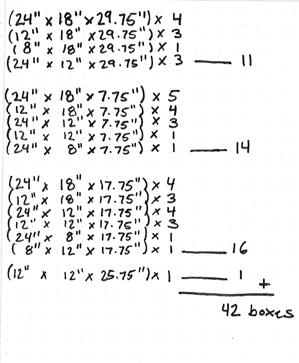 (24" x 18" x 29.75") x 4
(12" x 18" x 29.75") x 3
(8" x 18" x 29.75") x 1
(24" x 12" x 29.75") x 3 — 11
(24" x 18" x 7.75") x 5
(12" x 18" x 7.75") x 4
(24" x 12" x 7.75") x 3
(12" x 12" x 7.75") x 1
(24" x 8" x 7.75") x 1 — 14
(24" x 18" x 17.75") x 4
(12" x 18" x 17.75") x 3
(24" x 12" x 17.75") x 4
(12" x 12" x 17.75") x 3
(24" x 8" x 17.75") x 1
(8" x 12" x 17.75") x 1 — 16
(12" x 12" x 25.75") x 1 — 1
+
42 boxes